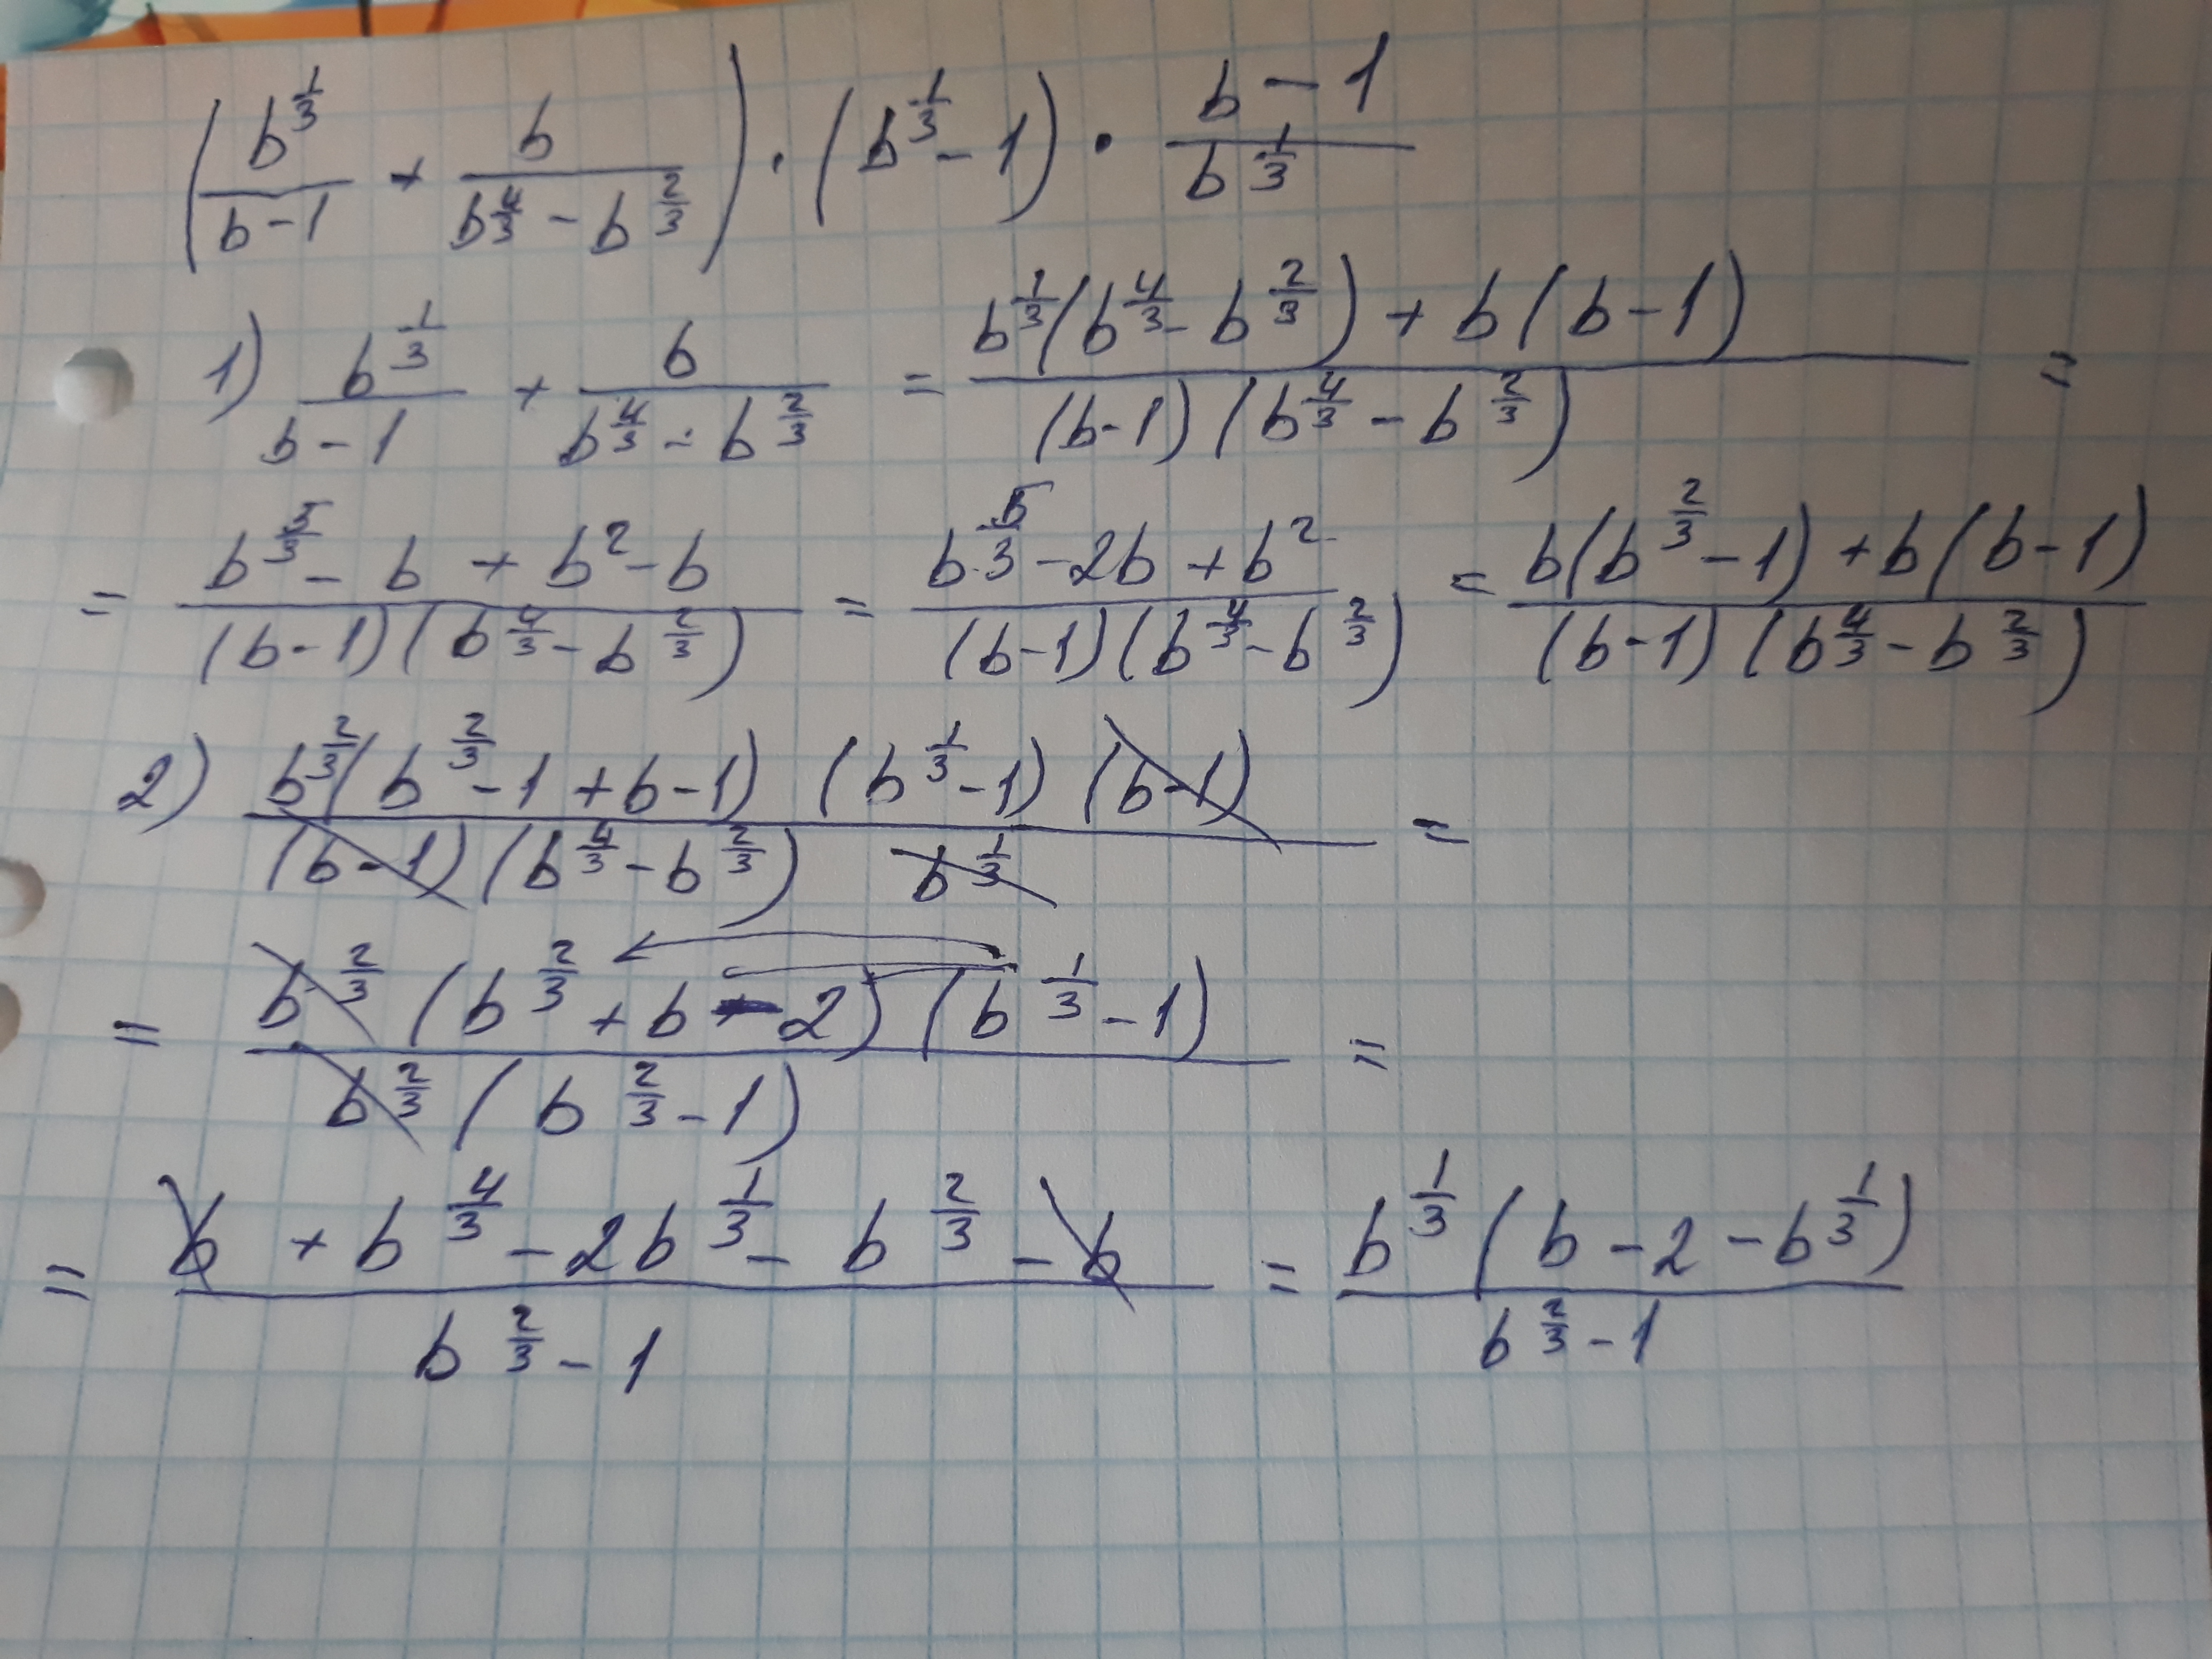 (b^{1/3}/(b-1) + b/(b^{4/3} - b^{2/3})) · (b^{1/3} - 1) · (b-1)/b^{1/3}
1) b^{1/3}/(b-1) + b/(b^{4/3} - b^{2/3}) = (b^{1/3}(b^{4/3} - b^{2/3}) + b(b-1))/((b-1)(b^{4/3} - b^{2/3})) =
= (b^{5/3} - b + b^2 - b)/((b-1)(b^{4/3} - b^{2/3})) = (b^{5/3} - 2b + b^2)/((b-1)(b^{4/3} - b^{2/3})) = (b(b^{2/3} - 1) + b(b-1))/((b-1)(b^{4/3} - b^{2/3}))
2) (b^{2/3}(b^{2/3} - 1 + b - 1) (b^{1/3} - 1) (b-1))/((b-1)(b^{4/3} - b^{2/3}) b^{1/3}) =
= (b^{2/3}(b^{2/3} + b - 2)(b^{1/3} - 1))/(b^{2/3}(b^{2/3} - 1)) =
= (b + b^{4/3} - 2b^{1/3} - b^{2/3} - b)/(b^{2/3} - 1) = (b^{1/3}(b - 2 - b^{1/3}))/(b^{2/3} - 1)